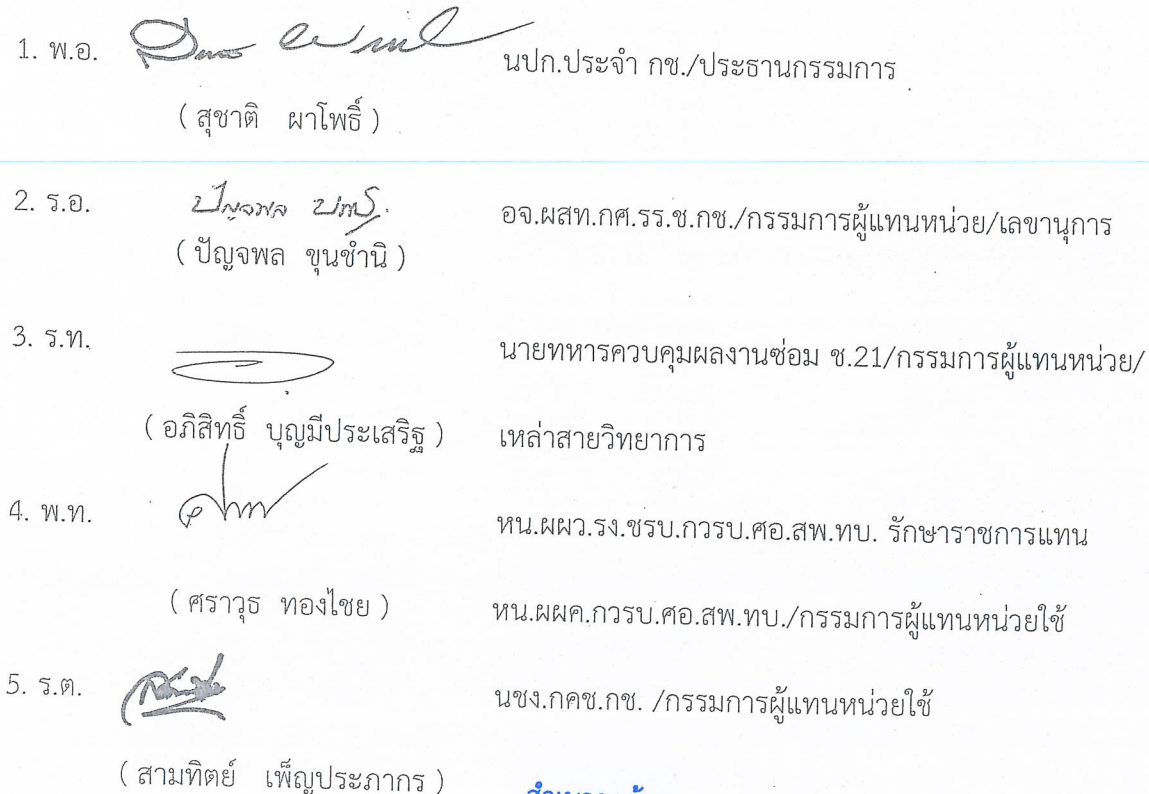 1. พ.อ. นปก.ประจำ กช./ประธานกรรมการ
( สุชาติ ผาโพธิ์ )
2. ร.อ. ปัญจพล อจ.ผสท.กศ.รร.ช.กช./กรรมการผู้แทนหน่วย/เลขานุการ
( ปัญจพล ขุนชำนิ )
3. ร.ท. นายทหารควบคุมผลงานซ่อม ช.21/กรรมการผู้แทนหน่วย/
( อภิสิทธิ์ บุญมีประเสริฐ ) เหล่าสายวิทยาการ
4. พ.ท. หน.ผผว.รง.ชรบ.กวรบ.ศอ.สพ.ทบ. รักษาราชการแทน
( ศราวุธ ทองไชย ) หน.ผผค.กวรบ.ศอ.สพ.ทบ./กรรมการผู้แทนหน่วยใช้
5. ร.ต. นชง.กคช.กช. /กรรมการผู้แทนหน่วยใช้
( สามทิตย์ เพ็ญประภากร )